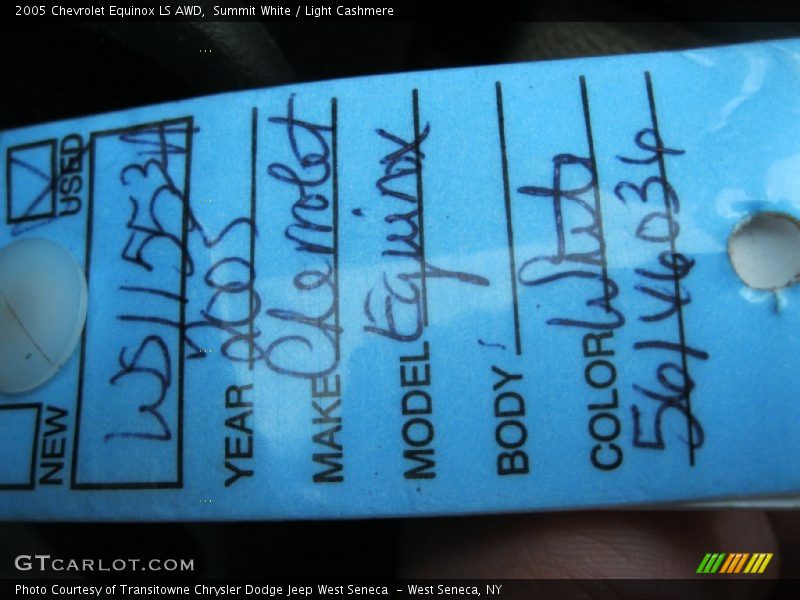 2005 Chevrolet Equinox LS AWD,  Summit White / Light Cashmere
NEW
USED
WS11553A
YEAR 2005
MAKE Chevrolet
MODEL Equinox
BODY
COLOR White
56146036
GTCARLOT.COM
Photo Courtesy of Transitowne Chrysler Dodge Jeep West Seneca  - West Seneca, NY